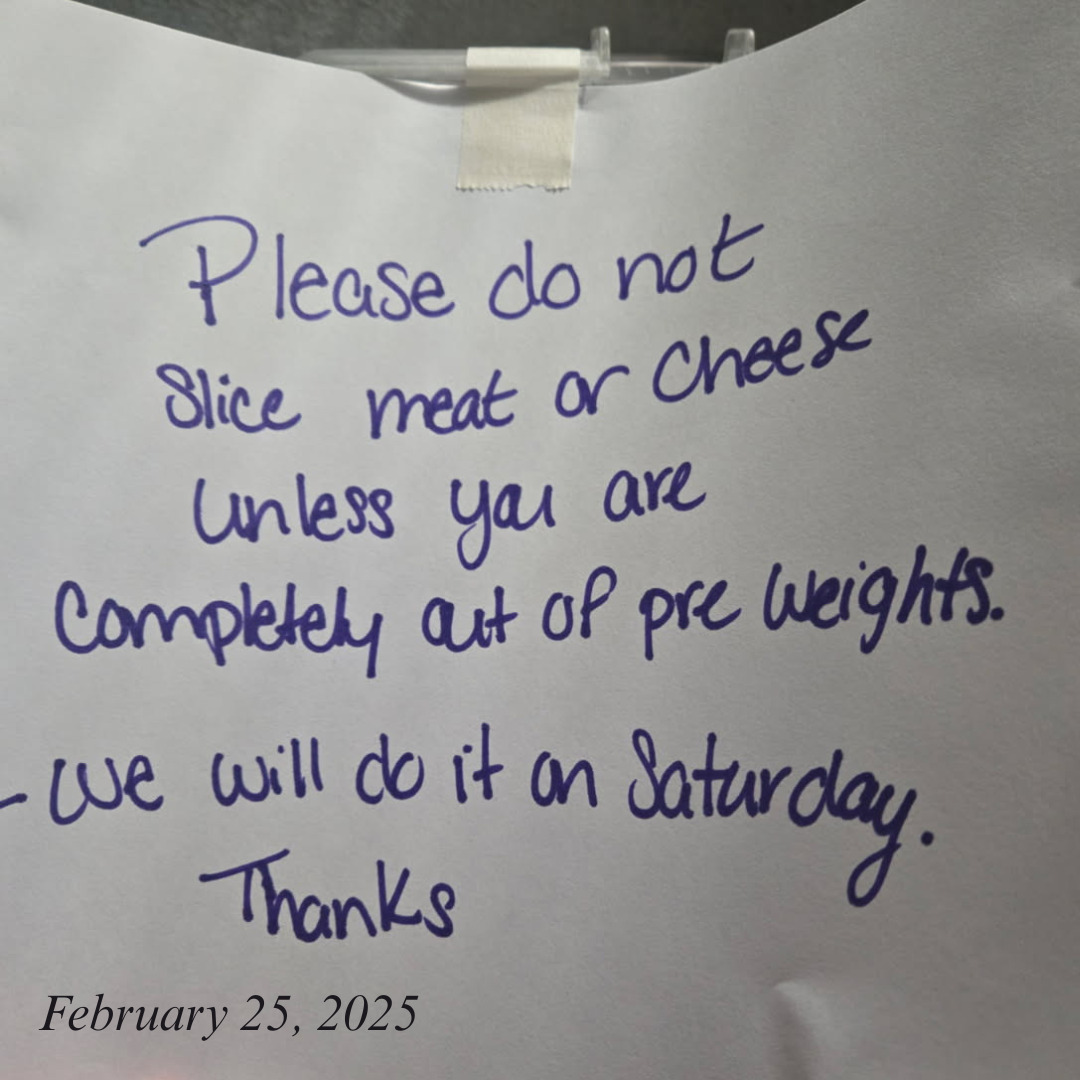 Please do not
Slice meat or Cheese
unless you are
Completely out of pre weights.
- We will do it on Saturday.
Thanks
February 25, 2025